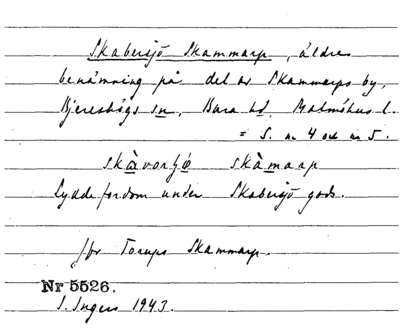 Skabersjö Skammarp, äldre
benämning på del av Skammarps by,
Bjereshögs sn, Bara hd, Malmöhus l.
= S. nr 4 och nr 5.
skàvorʃø skàmarp
Lydde fordom under Skabersjö gods.
Jfr Torups Skammarp.
Nr 5526.
I. Ingers 1943.